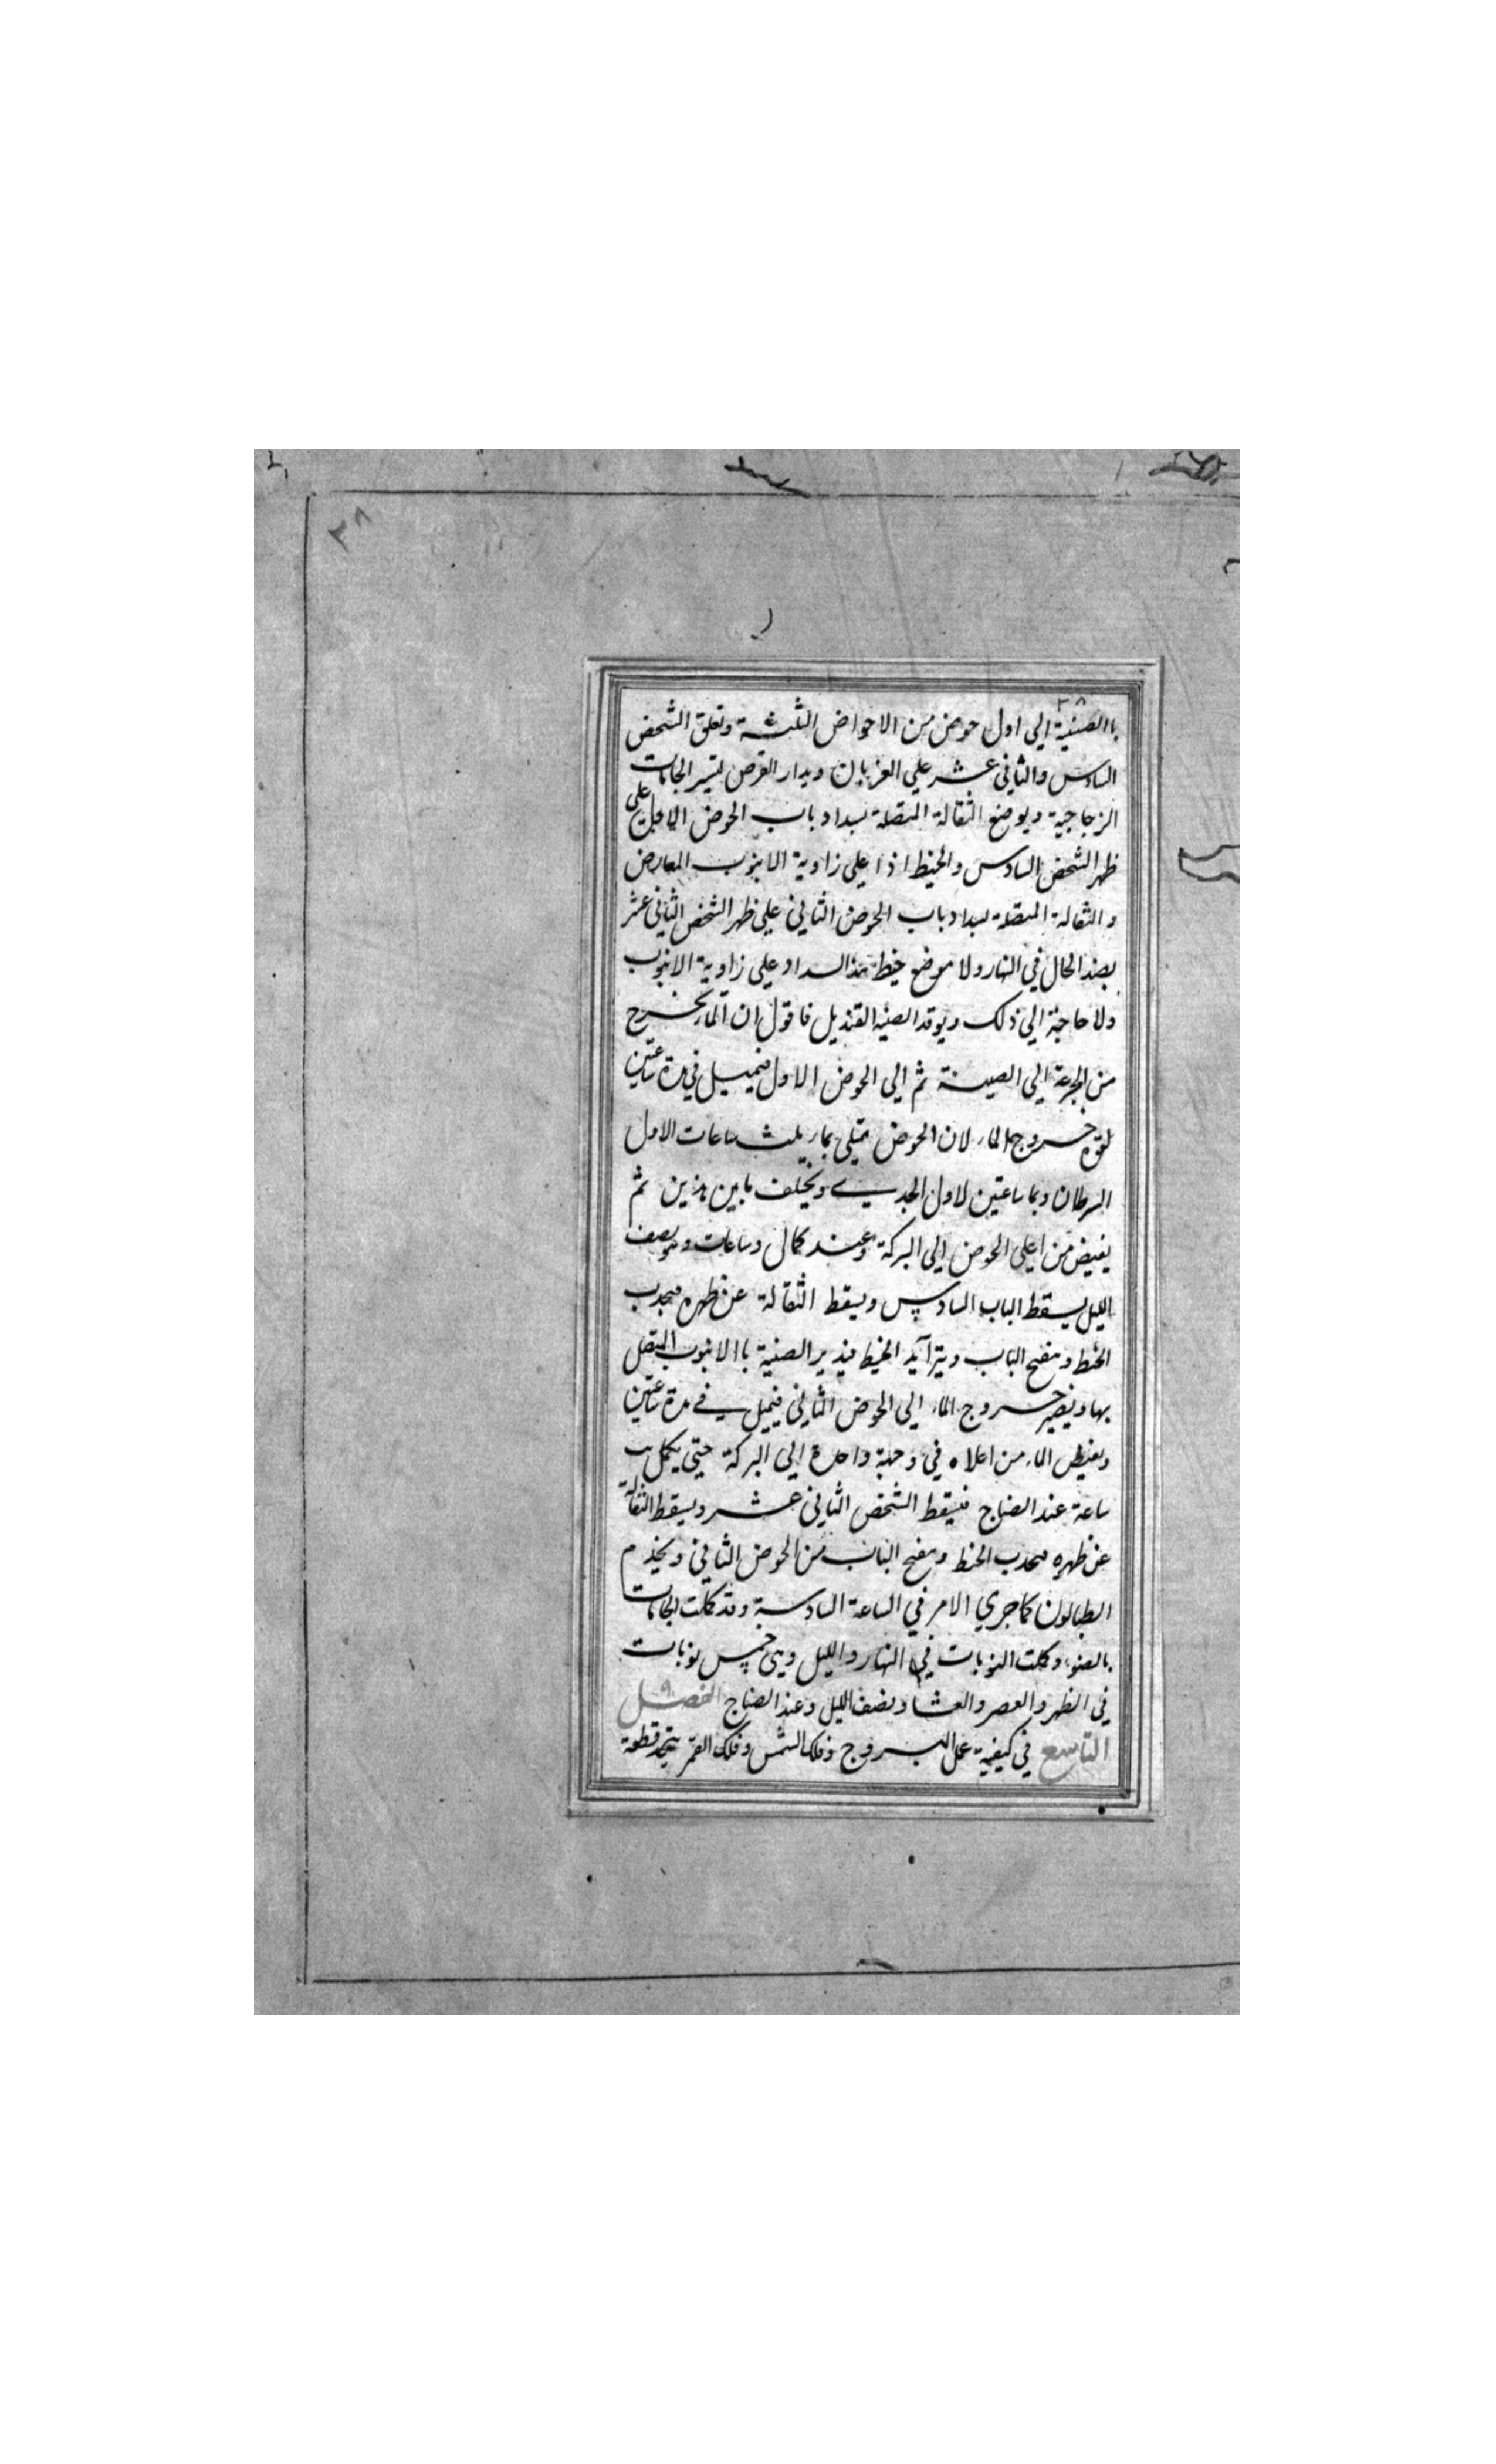 ٣٨
٣٨
باالصنية الى اول حوض من الاحواض الثلثة وتعلق الشخص
السادس والثاني عشر علي العزبان ويدار القرص لتسير الجامات
الزجاجية ويوضع الثقالة المتصلة بسداد باب الحوض الاول على
ظهر الشخص السادس والخيط اذا علي زاوية الانبوب المعارض
والثقالة المتصلة بسداد باب الحوض الثاني علي ظهر الشخص الثاني عشر
بضد الحال في النهار ولا موضع خيط هذا السداد علي زاوية الانبوب
ولا حاجة الي ذلك ويوقد الصنية القنديل فاقول ان الماء يخرج
من الجزعة الي الصينة ثم الي الحوض الاول فيميل في مدة ساعتين
لقوة خروج الماء لان الحوض تمتلي بماء ثلث ساعات الاول
السرطان وبما ساعتين لاول الجدي ويختلف ما بين هذين ثم
يفيض من اعلى الحوض الي البركة وعند كمال و ساعات وهو نصف
الليل يسقط الباب السادس ويسقط الثقالة عن ظهره فيجدب
الخيط وينفتح الباب ويتزآيد الخيط فيدير الصنية باالانبوب المتصل
بها ويصير خروج الماء الي الحوض الثاني فيميل في مدة ساعتين
ويفيض الماء من اعلاه في وحلة واحدة الي البركة حتي يكمل يب
ساعة عند الصباح فيسقط الشخص الثاني عشر ويسقط الثقالة
عن ظهره فيجدب الخيط وينفتح الباب من الحوض الثاني ويخدم
الطبالون كما جري الامر في الساعة السادسة وقد كملت الجامات
بالضوء وكملت النوبات في النهار والليل وهى خمس نوبات
في الظهر والعصر والعشا ونصف الليل وعند الصباح الفصل ٩
التاسع في كيفية عمل البروج وفلك الشمس وفلك القمر يتخذ قطعة